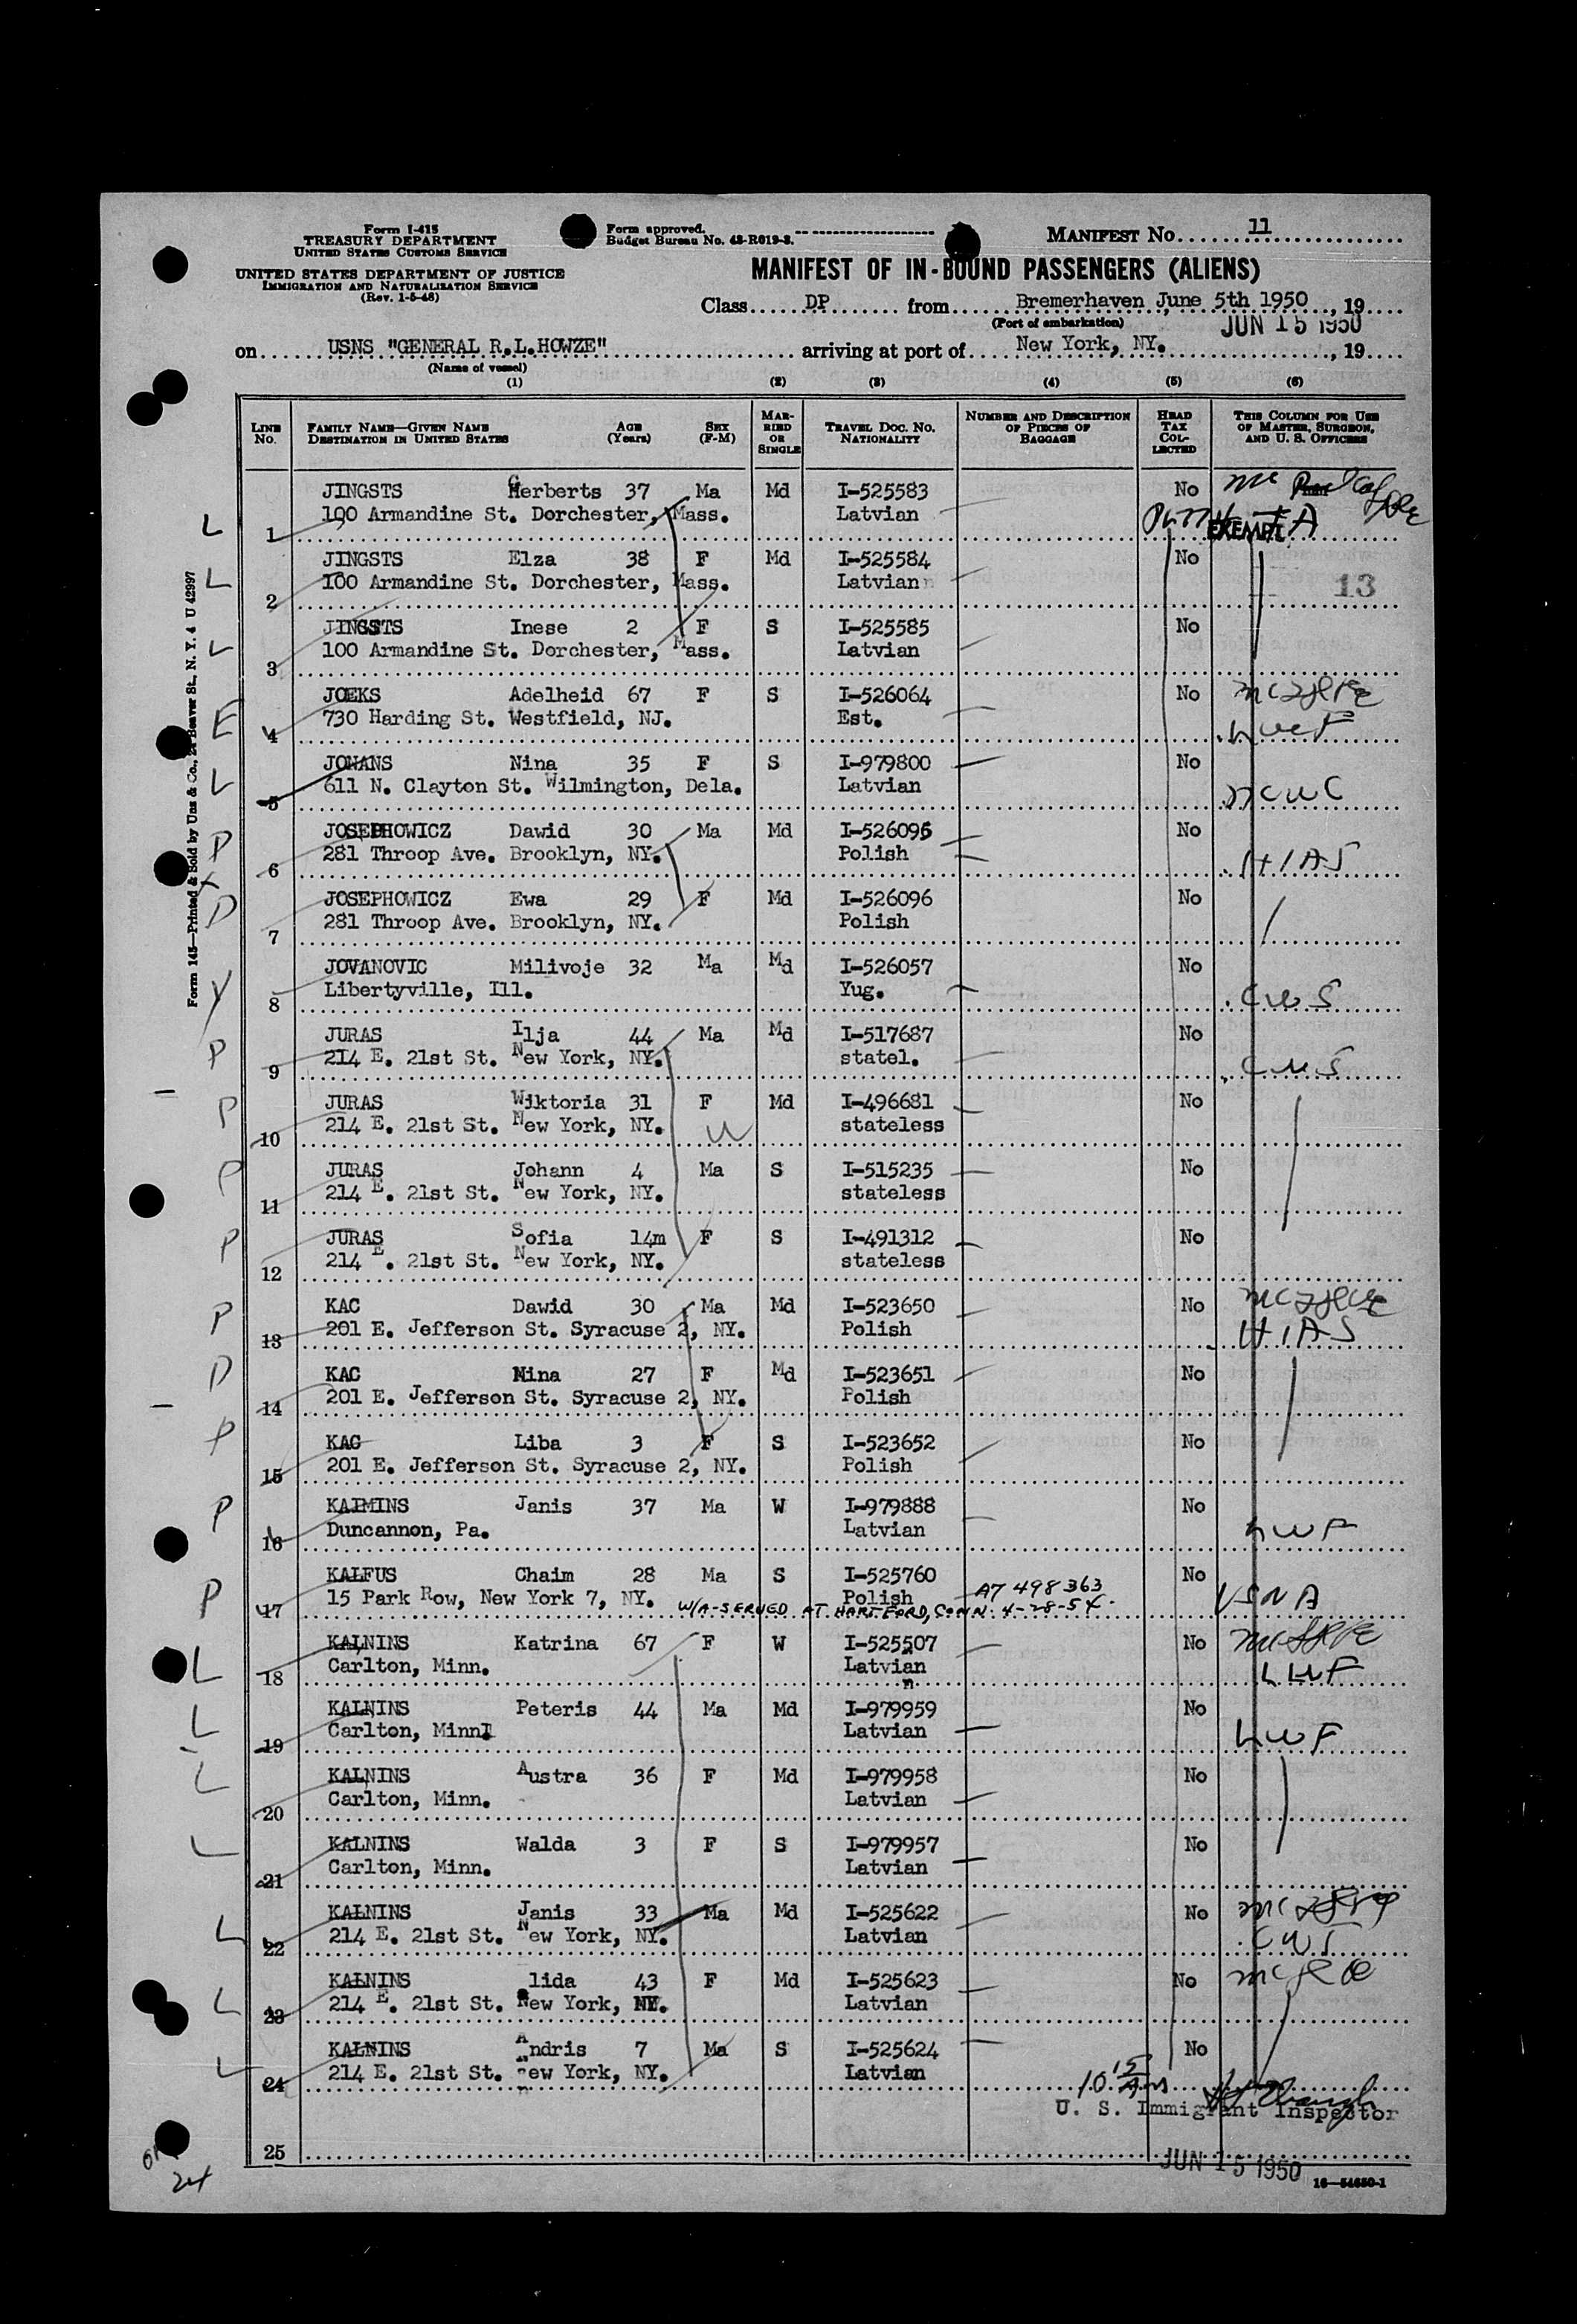 Form I-415
TREASURY DEPARTMENT
UNITED STATES CUSTOMS SERVICE
UNITED STATES DEPARTMENT OF JUSTICE
IMMIGRATION AND NATURALIZATION SERVICE
(Rev. 1-5-48)
Form approved.
Budget Bureau No. 43-R019-3.
MANIFEST No. 11
MANIFEST OF IN-BOUND PASSENGERS (ALIENS)
Class DP from Bremerhaven, June 5th 1950, 19
(Port of embarkation)
JUN 15 1950
on USNS "GENERAL R.L.HOWZE" arriving at port of New York, NY. , 19
(Name of vessel)
(1) (2) (3) (4) (5) (6)
LINE No.
FAMILY NAME—GIVEN NAME DESTINATION IN UNITED STATES
AGE (Years)
SEX (F-M)
MARRIED OR SINGLE
TRAVEL DOC. NO. NATIONALITY
NUMBER AND DESCRIPTION OF PIECES OF BAGGAGE
HEAD TAX COLLECTED
THIS COLUMN FOR USE OF MASTER, SURGEON, AND U. S. OFFICERS
JINGSTS Herberts 37 Ma Md I-525583 No
L 1 100 Armandine St. Dorchester, Mass. Latvian EXEMPT
JINGSTS Elza 38 F Md I-525584 No
L 2 100 Armandine St. Dorchester, Mass. Latvian 13
JINGSTS Inese 2 F S I-525585 No
L 3 100 Armandine St. Dorchester, Mass. Latvian
JOEKS Adelheid 67 F S I-526064 No
E 4 730 Harding St. Westfield, NJ. Est.
JOHANS Nina 35 F S I-979800 No
L 5 611 N. Clayton St. Wilmington, Dela. Latvian NCWC
JOSEPHOWICZ Dawid 30 Ma Md I-526095 No
P 6 281 Throop Ave. Brooklyn, NY. Polish HIAS
JOSEPHOWICZ Ewa 29 F Md I-526096 No
P 7 281 Throop Ave. Brooklyn, NY. Polish
JOVANOVIC Milivoje 32 Ma Md I-526057 No
Y 8 Libertyville, Ill. Yug. CWS
JURAS Ilja 44 Ma Md I-517687 No
P 9 214 E. 21st St. New York, NY. statel. CWS
JURAS Wiktoria 31 F Md I-496681 No
P 10 214 E. 21st St. New York, NY. stateless
JURAS Johann 4 Ma S I-515235 No
P 11 214 E. 21st St. New York, NY. stateless
JURAS Sofia 14m F S I-491312 No
P 12 214 E. 21st St. New York, NY. stateless
KAC Dawid 30 Ma Md I-523650 No
P 13 201 E. Jefferson St. Syracuse 2, NY. Polish HIAS
KAC Nina 27 F Md I-523651 No
P 14 201 E. Jefferson St. Syracuse 2, NY. Polish
KAC Liba 3 F S I-523652 No
P 15 201 E. Jefferson St. Syracuse 2, NY. Polish
KAIMINS Janis 37 Ma W I-979888 No
P 16 Duncannon, Pa. Latvian LWF
KALFUS Chaim 28 Ma S I-525760 No
P 17 15 Park Row, New York 7, NY. Polish A7 498 363 USNA
W/A-SERVED AT HARTFORD, CONN. 4-28-54.
KALNINS Katrina 67 F W I-525507 No
L 18 Carlton, Minn. Latvian LWF
KALNINS Peteris 44 Ma Md I-979959 No
L 19 Carlton, Minn. Latvian LWF
KALNINS Austra 36 F Md I-979958 No
L 20 Carlton, Minn. Latvian
KALNINS Walda 3 F S I-979957 No
L 21 Carlton, Minn. Latvian
KALNINS Janis 33 Ma Md I-525622 No
L 22 214 E. 21st St. New York, NY. Latvian
KALNINS lida 43 F Md I-525623 No
L 23 214 E. 21st St. New York, NY. Latvian
KALNINS Andris 7 Ma S I-525624 No
L 24 214 E. 21st St. New York, NY. Latvian
10 15 Am
U. S. Immigrant Inspector
25
JUN 15 1950
24
16—54650-1
Form 145—Printed & Sold by Unz & Co., 24 Beaver St., N. Y. 4 U 42997